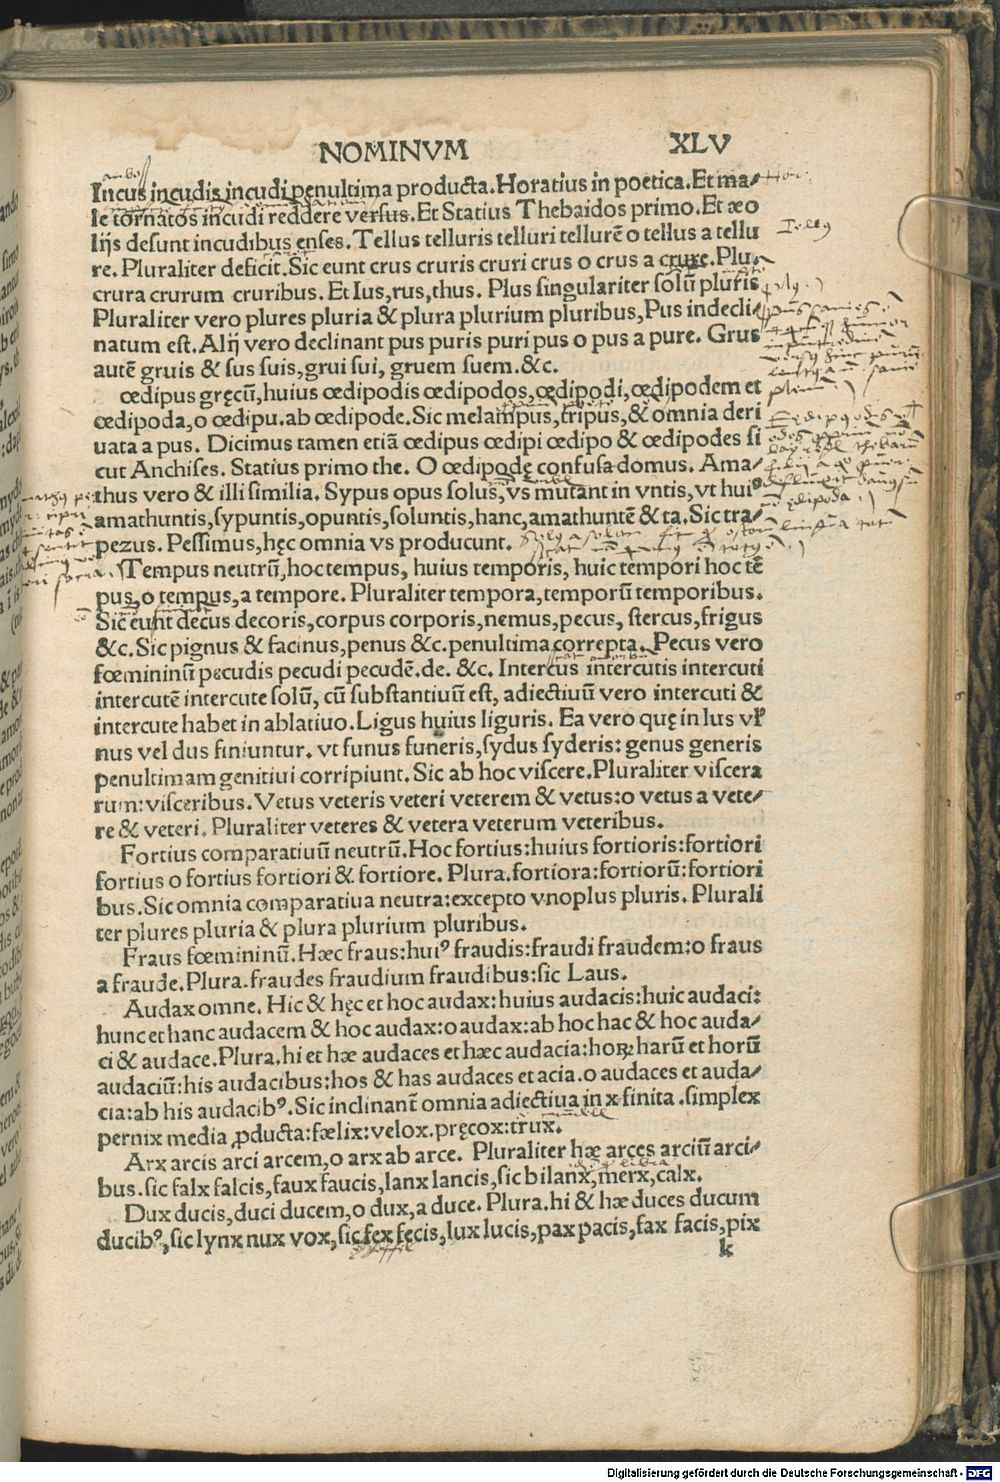 NOMINVM XLV
Incus incudis incudi penultima producta. Horatius in poetica. Et ma⸗
le tornatos incudi reddere versus. Et Statius Thebaidos primo. Et æo
lijs desunt incudibus enses. Tellus telluris telluri tellurē o tellus a tellu
re. Pluraliter deficit. Sic eunt crus cruris cruri crus o crus a crure. Plu.
crura crurum cruribus. Et Ius, rus, thus. Plus singulariter solū pluris
Pluraliter vero plures pluria & plura plurium pluribus, Pus indecli⸗
natum est. Alij vero declinant pus puris puri pus o pus a pure. Grus
autē gruis & sus suis, grui sui, gruem suem. &c.
œdipus gręcū, huius œdipodis œdipodos, œdipodi, œdipodem et
œdipoda, o œdipu. ab œdipode. Sic melampus, tripus, & omnia deri
uata a pus. Dicimus tamen etiā œdipus œdipi œdipo & œdipodes si
cut Anchises. Statius primo the. O œdipodę confusa domus. Ama⸗
thus vero & illi similia. Sypus opus solus, vs mutant in vntis, vt huiꝰ
amathuntis, sypuntis, opuntis, soluntis, hanc, amathuntē & ta. Sic tra⸗
pezus. Pessimus, hęc omnia vs producunt.
Tempus neutrū, hoc tempus, huius temporis, huic tempori hoc tē
pus, o tempus, a tempore. Pluraliter tempora, temporū temporibus.
Sic eunt decus decoris, corpus corporis, nemus, pecus, stercus, frigus
&c. Sic pignus & facinus, penus &c. penultima correpta. Pecus vero
fœmininū pecudis pecudi pecudē. de. &c. Intercus intercutis intercuti
intercutē intercute solū, cū substantiuū est, adiectiuū vero intercuti &
intercute habet in ablatiuo. Ligus huius liguris. Ea vero quę in lus vł
nus vel dus finiuntur. vt funus funeris, sydus syderis: genus generis
penultimam genitiui corripiunt. Sic ab hoc viscere. Pluraliter viscera
rum: visceribus. Vetus veteris veteri veterem & vetus: o vetus a vete⸗
re & veteri. Pluraliter veteres & vetera veterum veteribus.
Fortius comparatiuū neutrū. Hoc fortius: huius fortioris: fortiori
fortius o fortius fortiori & fortiore. Plura. fortiora: fortiorū: fortiori
bus. Sic omnia comparatiua neutra: excepto vno plus pluris. Plurali
ter plures pluria & plura plurium pluribus.
Fraus fœmininū. Hæc fraus: huiꝰ fraudis: fraudi fraudem: o fraus
a fraude. Plura. fraudes fraudium fraudibus: sic Laus.
Audax omne. Hic & hęc et hoc audax: huius audacis: huic audaci:
hunc et hanc audacem & hoc audax: o audax: ab hoc hac & hoc auda⸗
ci & audace. Plura. hi et hæ audaces et hæc audacia: hoꝝ harū et horū
audaciū: his audacibus: hos & has audaces et acia. o audaces et auda⸗
cia: ab his audacibꝰ. Sic inclinant̄ omnia adiectiua in x finita. simplex
pernix media ꝓducta: fælix: velox. pręcox: trux.
Arx arcis arci arcem, o arx ab arce. Pluraliter hæ arces arciū arci⸗
bus. sic falx falcis, faux faucis, lanx lancis, sic bilanx, merx, calx.
Dux ducis, duci ducem, o dux, a duce. Plura. hi & hæ duces ducum
ducibꝰ, sic lynx nux vox, sic fex fęcis, lux lucis, pax pacis, fax facis, pix
k
Digitalisierung gefördert durch die Deutsche Forschungsgemeinschaft - DFG